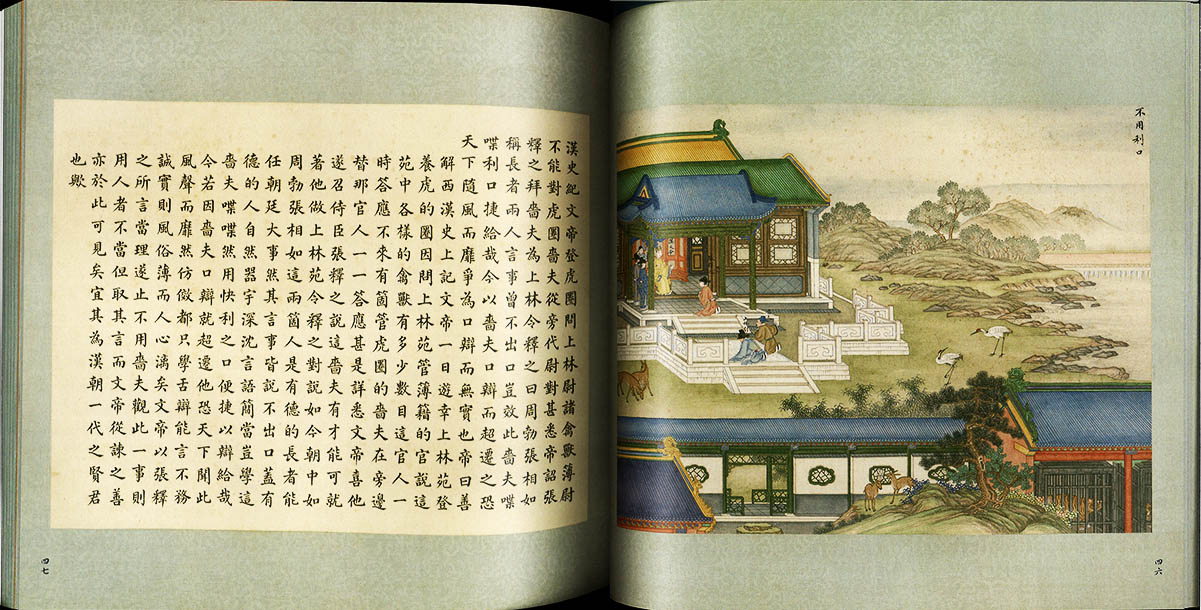 不用利口
四六
漢史紀文帝登虎圈問上林尉諸禽獸簿尉
不能對虎圈嗇夫從旁代尉對甚悉帝詔張
釋之拜嗇夫為上林令釋之曰周勃張相如
稱長者兩人言事曾不出口豈效此嗇夫喋
喋利口捷給哉今以嗇夫口辯而超遷之恐
天下隨風而靡爭為口辯而無實也帝曰善
解西漢史上記文帝一日遊幸上林苑登
養虎的圈因問上林苑管簿籍的官說這
苑中各樣的禽獸有多少數目這官人一
時答應不來有箇管虎圈的嗇夫在旁邊
替那官人一一答應甚是詳悉文帝喜他
遂召侍臣張釋之說這嗇夫有才能可就
著他做上林苑令釋之對說如今朝中如
周勃張相如這兩箇人是有德的長者能
任朝廷大事然其言事皆說不出口蓋有
德的人自然器宇深沈言語簡當豈學這
嗇夫喋喋然用快利之口便捷以辯給哉
今若因嗇夫口辯就超遷他恐天下聞此
風聲而靡然仿傚都只學舌辯能言不務
誠實則風俗薄而人心漓矣文帝以張釋
之所言當理遂止不用嗇夫觀此一事則
用人者不當但取其言而文帝從諫之善
亦於此可見矣宜其為漢朝一代之賢君
也歟
四七